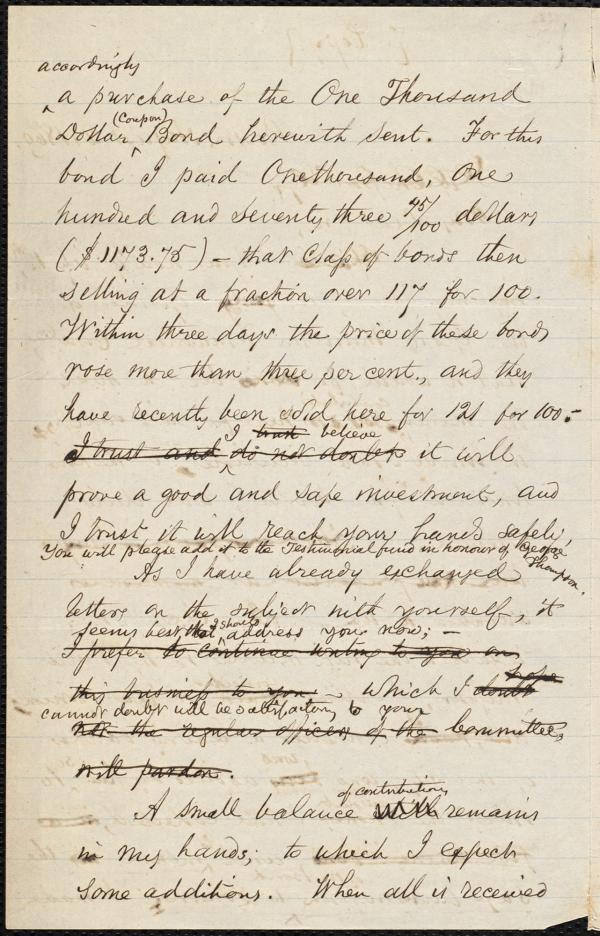 accordingly
^ a purchase of the One Thousand
(Coupon)
Dollar ^ Bond herewith sent. For this
bond I paid Onethousand, One
hundred and seventy three 45/100 dollars
($1173.75) – that class of bonds then
selling at a fraction over 117 for 100.
Within three days the price of these bonds
rose more than three per cent., and they
have recently been sold here for 121 for 100.–
I trust believe
I trust and ^ do not doubt it will
prove a good and safe investment, and
I trust it will reach your hands safely;
You will please add it to the Testimonial fund in honour of George Thompson.
As I have already exchanged
letters on the subject with yourself, it
seems best that I should ^ address you now; –
I prefer to continue writing to you on
this business to you – which I doubt hope
cannot doubt will be satisfactory to your
not the regular officers of the Committee,
will pardon.
of contributions
A small balance still remains
in my hands; to which I expect
some additions. When all is received